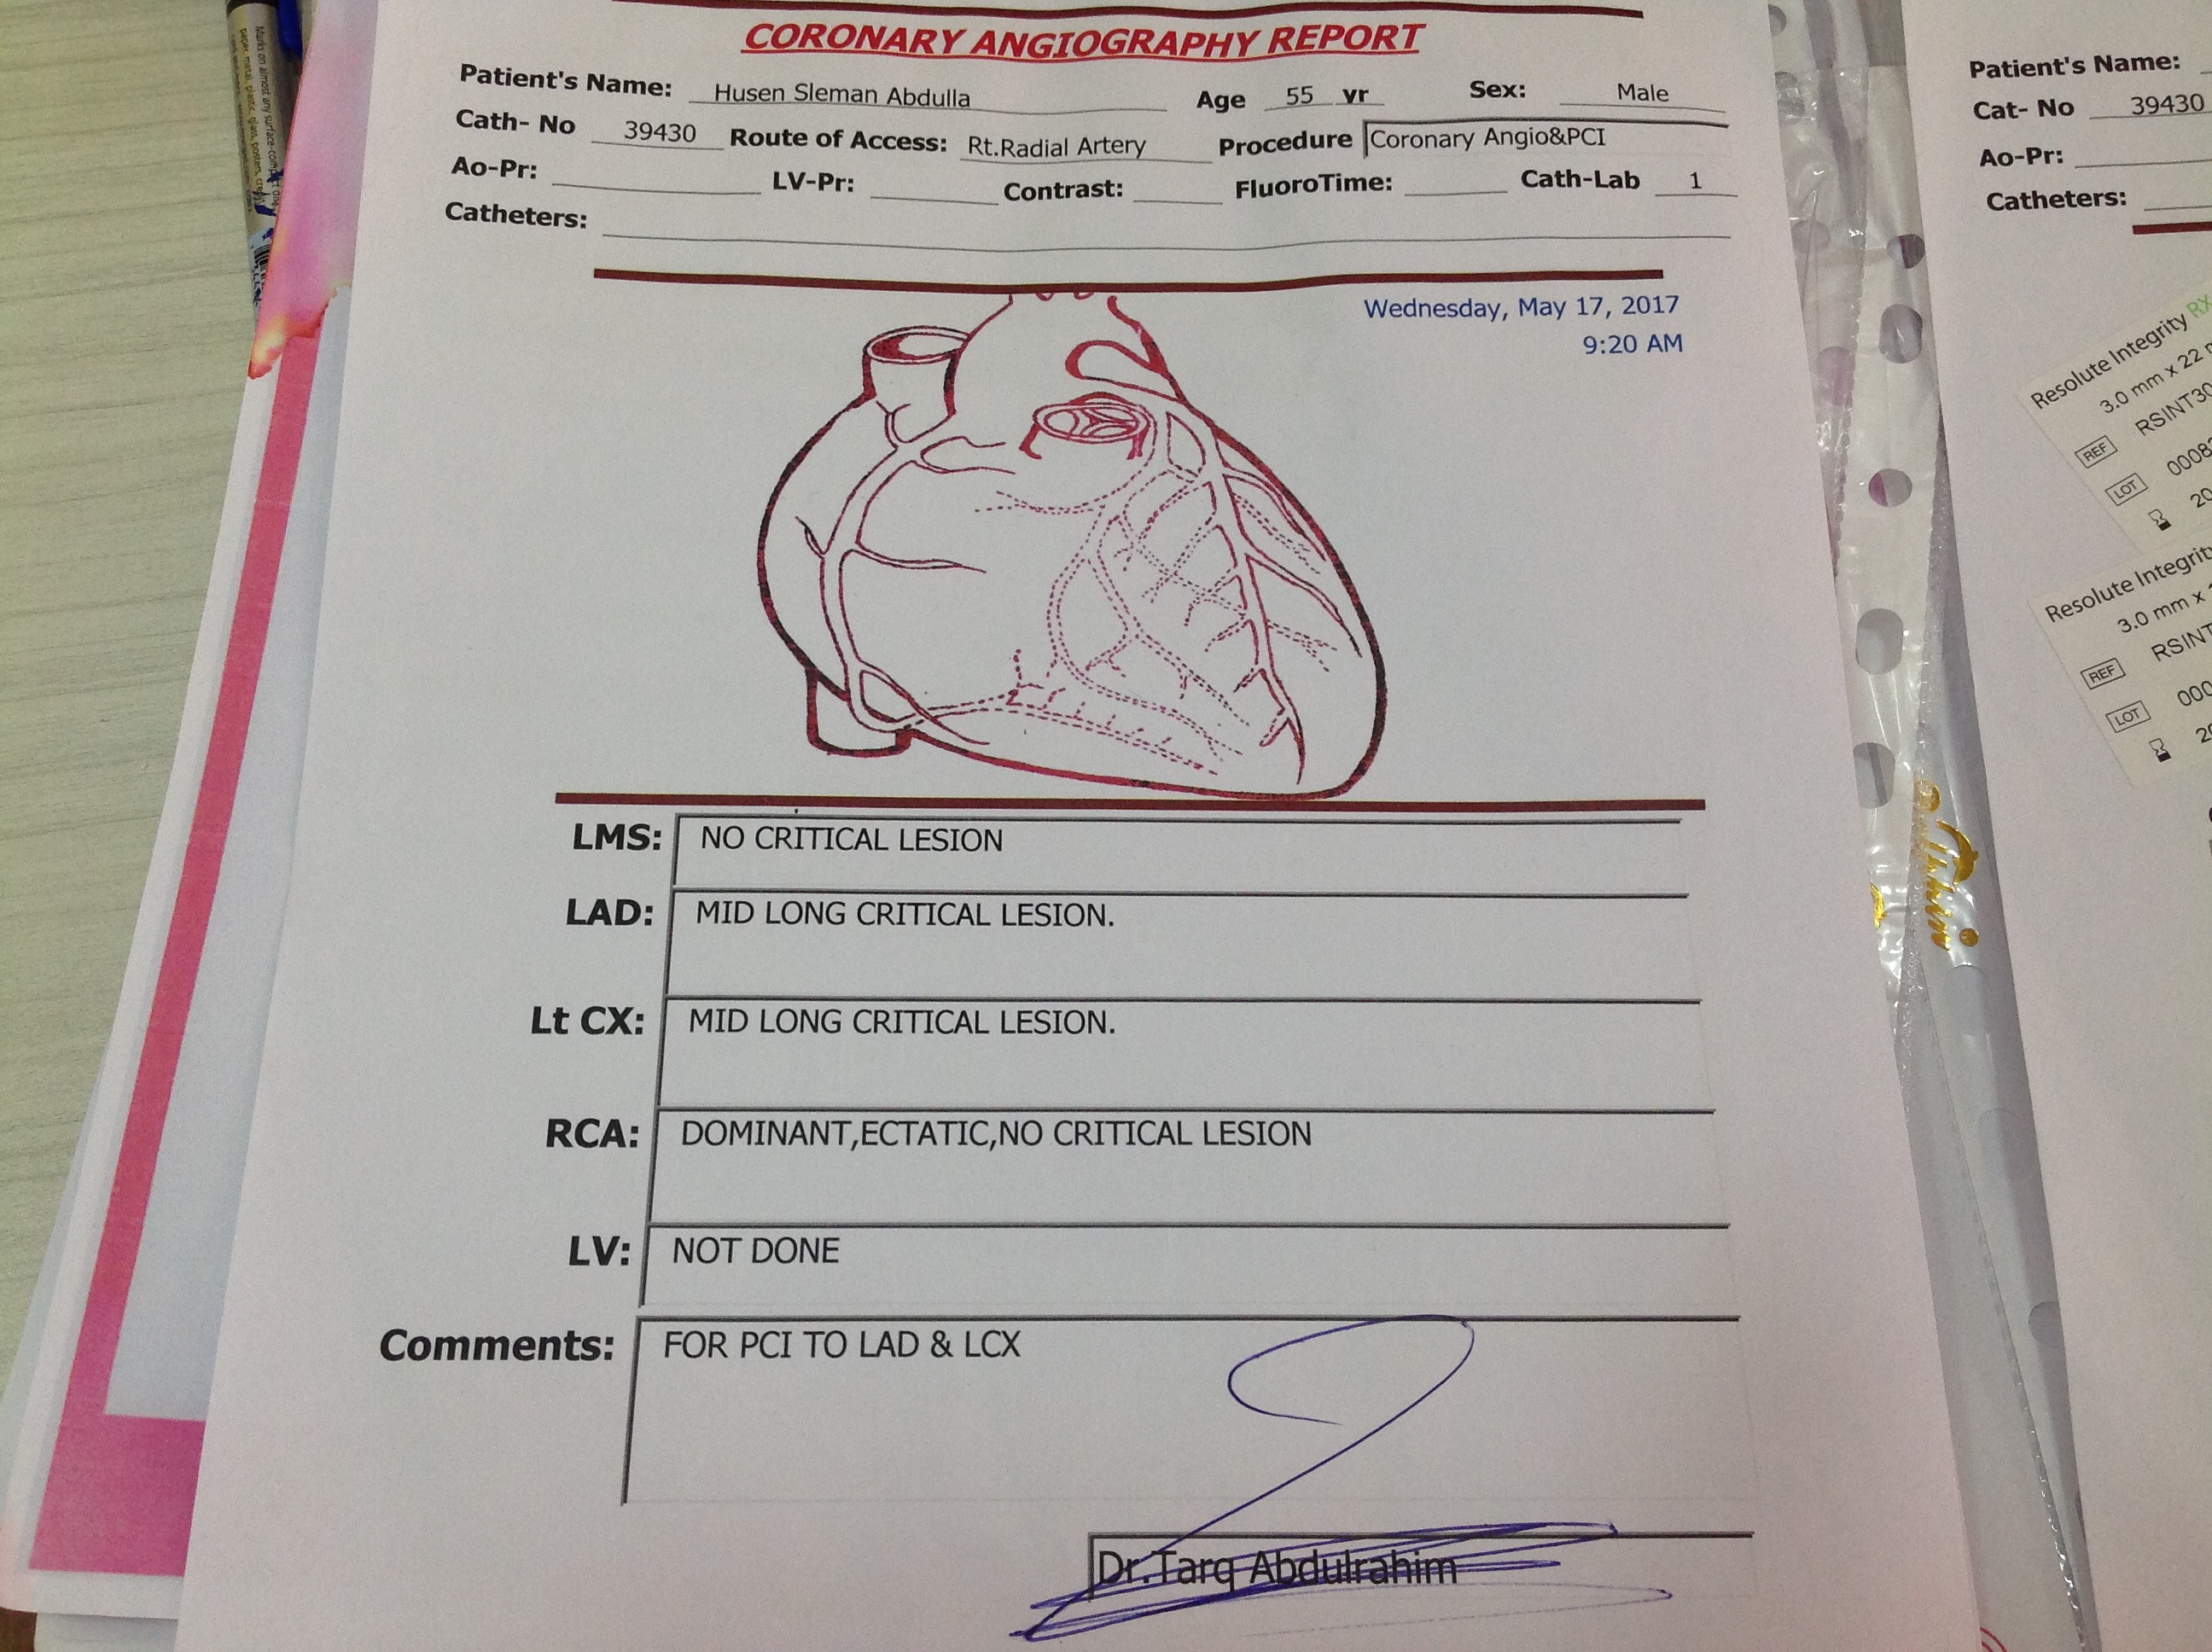 CORONARY ANGIOGRAPHY REPORT
Patient's Name: Husen Sleman Abdulla Age 55 yr Sex: Male
Cath- No 39430 Route of Access: Rt.Radial Artery Procedure Coronary Angio&PCI
Ao-Pr: LV-Pr: Contrast: FluoroTime: Cath-Lab 1
Catheters:
Wednesday, May 17, 2017
9:20 AM
LMS: NO CRITICAL LESION
LAD: MID LONG CRITICAL LESION.
Lt CX: MID LONG CRITICAL LESION.
RCA: DOMINANT,ECTATIC,NO CRITICAL LESION
LV: NOT DONE
Comments: FOR PCI TO LAD & LCX
Dr.Tarq Abdulrahim
Patient's Name:
Cat- No 39430
Ao-Pr:
Catheters:
Resolute Integrity RX
3.0 mm x 22
REF
LOT
Resolute Integrity
3.0 mm x
REF RSINT
LOT
Marks on almost any surface